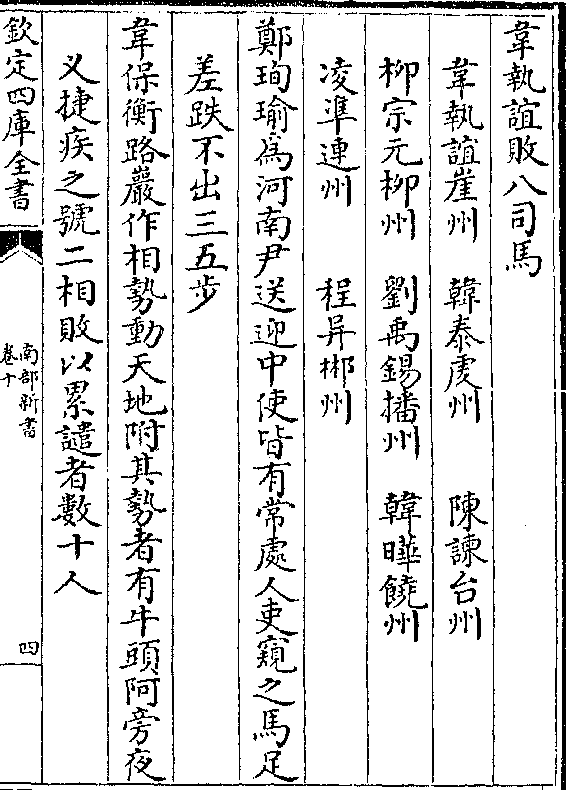 韋執誼敗八司馬
韋執誼崖州 韓泰虔州 陳諫台州
柳宗元柳州 劉禹錫播州 韓曄饒州
凌準連州 程异郴州
鄭珣瑜爲河南尹送迎中使皆有常處人吏窺之馬足
差跌不出三五步
韋保衡路巖作相勢動天地附其勢者有牛頭阿旁夜
义捷疾之號二相敗以累譴者數十人
欽定四庫全書
南部新書
卷十
四